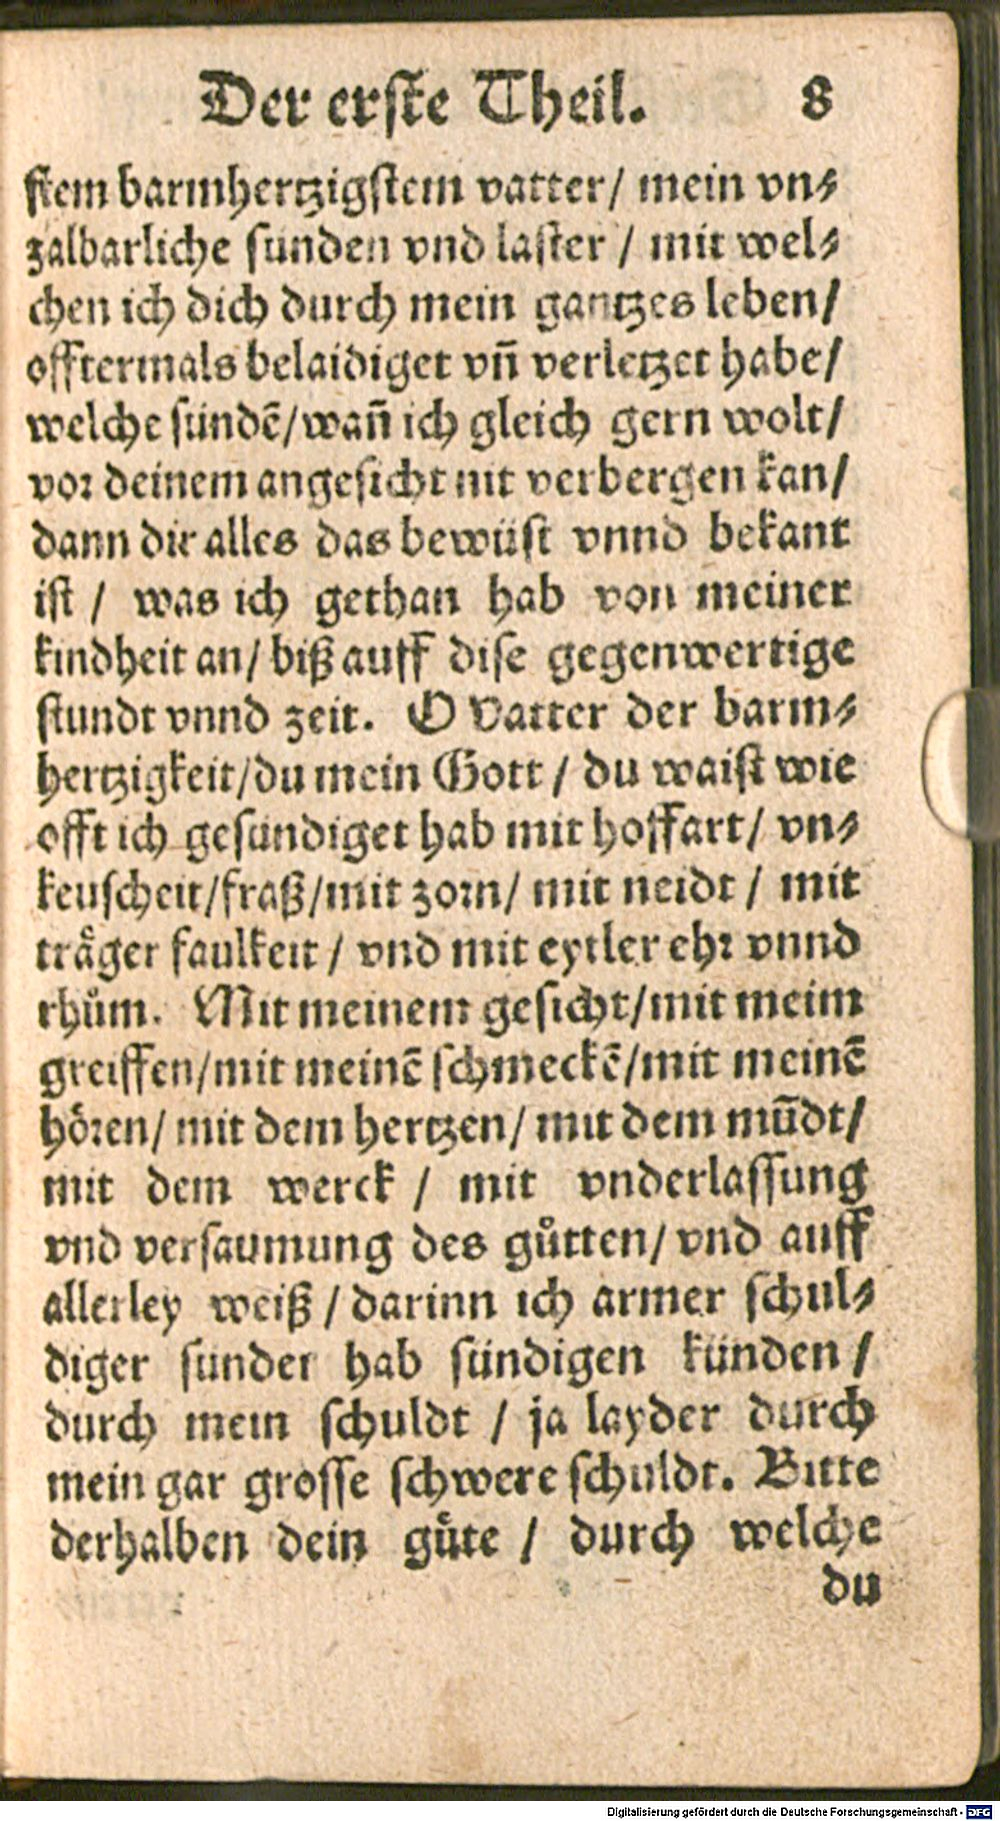 Der erste Theil. 8
stem barmhertzigstem vatter/ mein vn⸗
zalbarliche sünden vnd laster / mit wel⸗
chen ich dich durch mein gantzes leben/
offtermals belaidiget vñ verletzet habe/
welche sündē/wañ ich gleich gern wolt/
vor deinem angesicht nit verbergen kan/
dann dir alles das bewüst vnnd bekant
ist / was ich gethan hab von meiner
kindheit an/ biß auff dise gegenwertige
stundt vnnd zeit. O Vatter der barm⸗
hertzigkeit/du mein Gott / du waist wie
offt ich gesündiget hab mit hoffart/ vn⸗
keuscheit/fraß/mit zorn/ mit neidt / mit
traͤger faulkeit / vnd mit eytler ehr vnnd
rhům. Mit meinem gesicht/mit meim
greiffen/mit meinē schmeckē/mit meinē
hoͤren/ mit dem hertzen/ mit dem mūdt/
mit dem werck / mit vnderlassung
vnd versaumung des gůtten/ vnd auff
allerley weiß / darinn ich armer schul⸗
diger sünder hab sündigen künden /
durch mein schuldt / ja layder durch
mein gar grosse schwere schuldt. Bitte
derhalben dein guͤte / durch welche
du
Digitalisierung gefördert durch die Deutsche Forschungsgemeinschaft - DFG